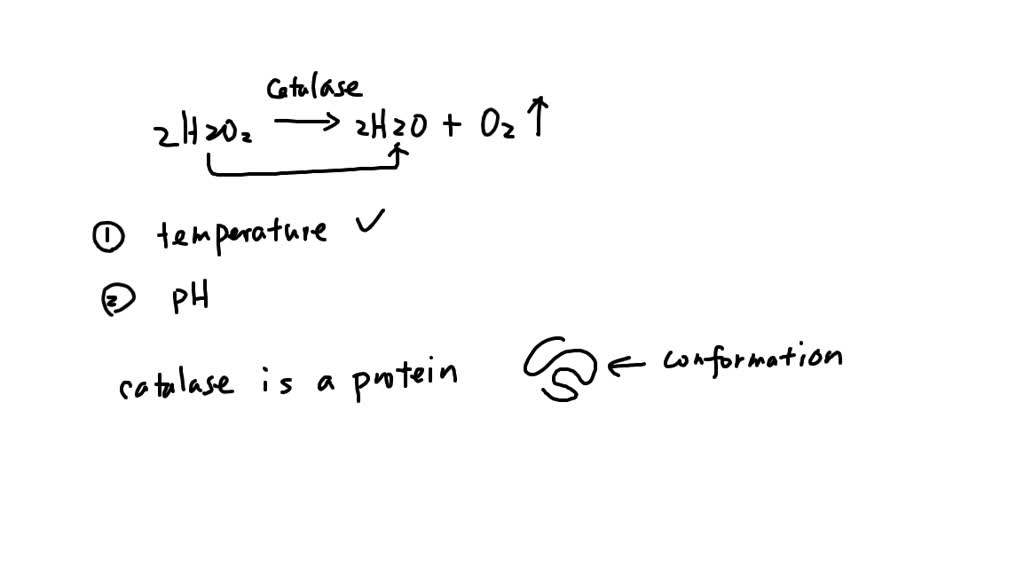 catalase
2H2O₂ → 2H2O + O₂ ↑
① temperature ✓
② pH
catalase is a protein ← conformation